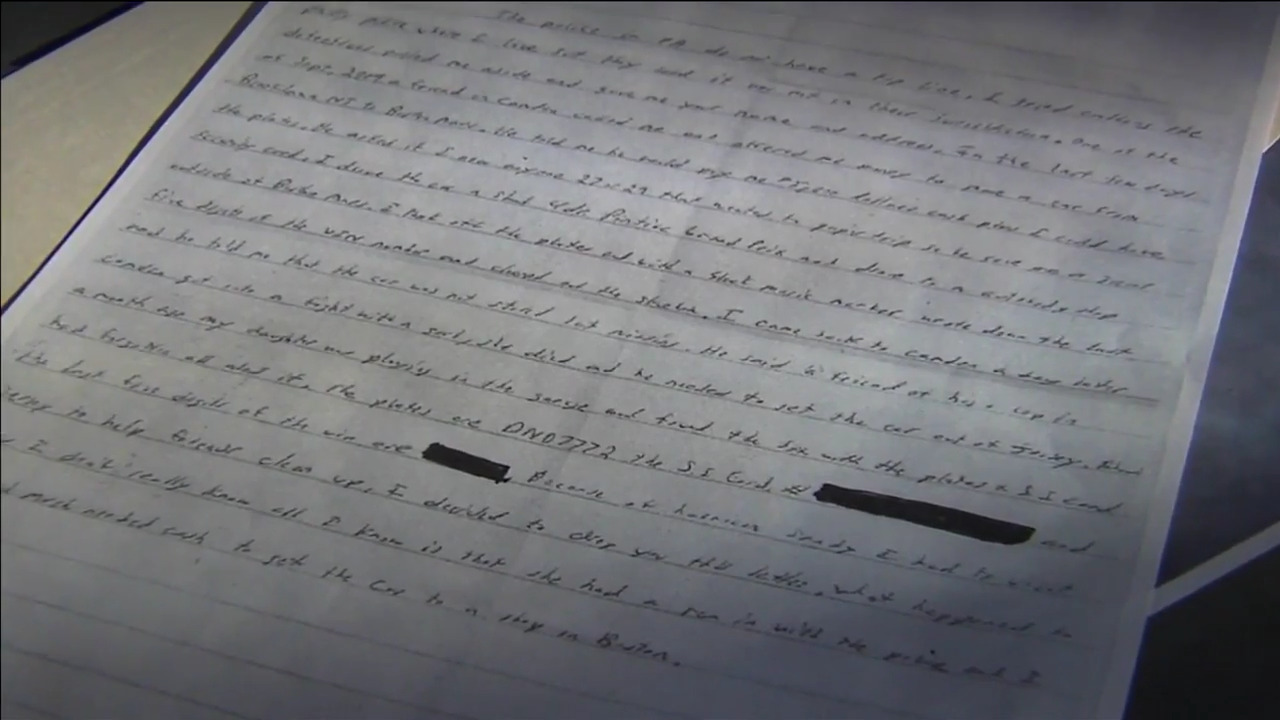 The police in PA do not have a tip line. I tried calling the
party police where I live but they said it was not in their jurisdiction. One of the
detectives pulled me aside and gave me your name and address. In the last few days
of Sept. 2009 a friend in Camden called me and offered me money to move a car from
NJ to Boston mass. He told me he would pay me dollars cash plus I could have
the plates. He asked if I new anyone 22 x 29 that needed to so he gave me a social
security card. I drove the car a black 4dr Pontiac Grand Prix and drove to a shop
outside of Boston mass. I took off the plates and with a black magic marker wrote down the last
five digits of the vin number and the I came back to Camden a day later
and he told me that the car was not stolen but missing. He said a friend of his a cop in
Camden got into a fight with a girl, she died and he needed to get the car out of Jersey.
a month ago my daughter was playing in the garage and found the box with the plates & S I Card
had forgotten all about it. The plates are DND7772 the S.S Card #
and
the last five digits of the vin are Because of hurricane Sandy I had to
to help friends clean up, I decided to drop you this letter. What happened to
I don't really know all I know is that she had a run in with the police and I
much needed cash to get the car to a shop in Boston.